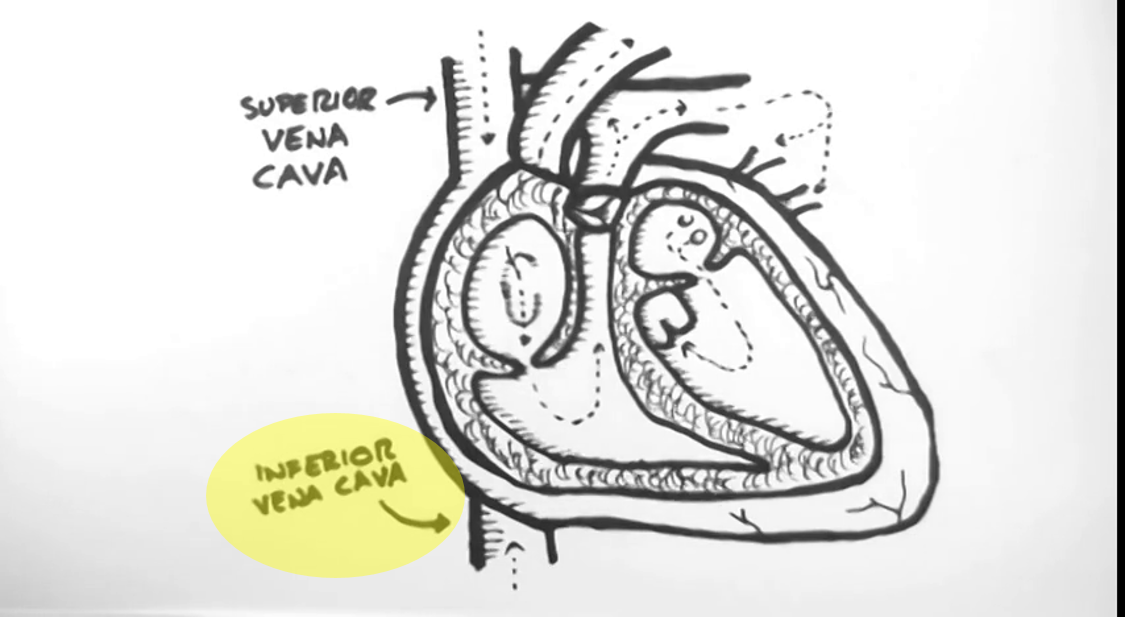 SUPERIOR
VENA
CAVA
INFERIOR
VENA CAVA